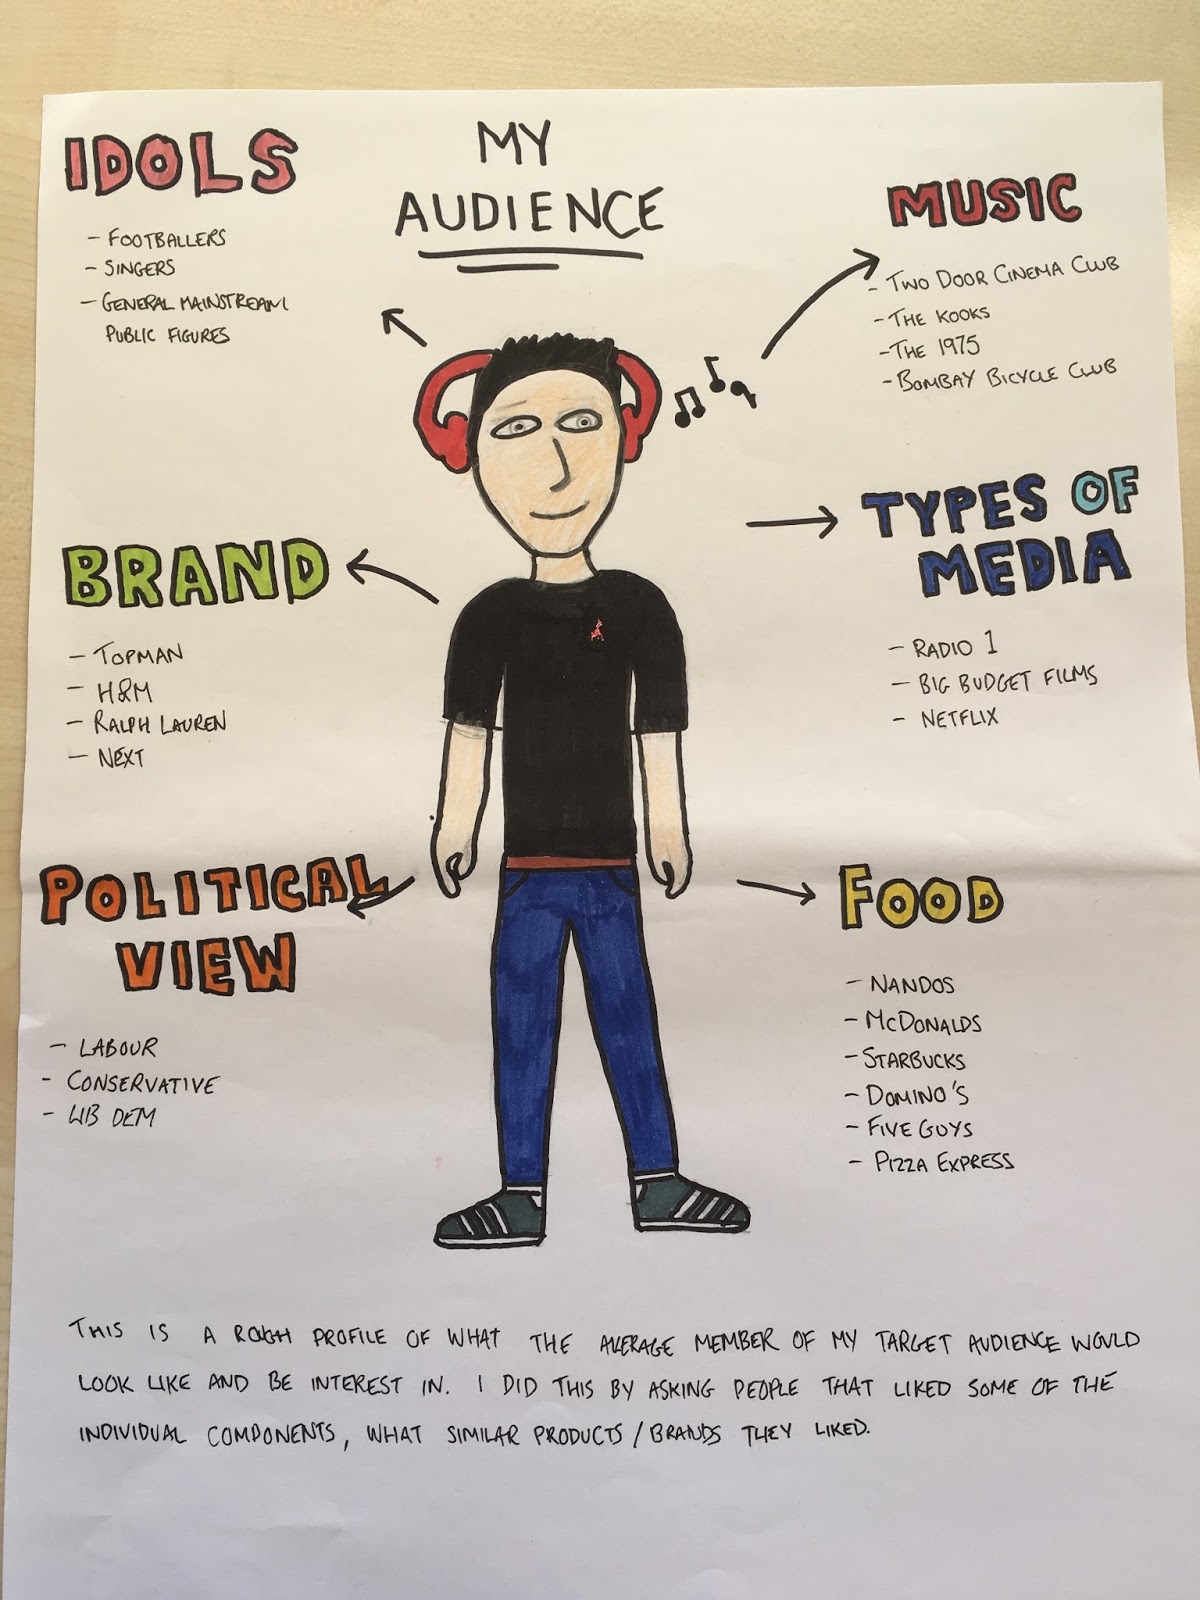 MY
AUDIENCE
IDOLS
- FOOTBALLERS
- SINGERS
- GENERAL MAINSTREAM
PUBLIC FIGURES
MUSIC
- TWO DOOR CINEMA CLUB
- THE KOOKS
- THE 1975
- BOMBAY BICYCLE CLUB
BRAND
- TOPMAN
- H&M
- RALPH LAUREN
- NEXT
TYPES OF
MEDIA
- RADIO 1
- BIG BUDGET FILMS
- NETFLIX
POLITICAL
VIEW
- LABOUR
- CONSERVATIVE
- LIB DEM
FOOD
- NANDOS
- MCDONALDS
- STARBUCKS
- DOMINO'S
- FIVE GUYS
- PIZZA EXPRESS
THIS IS A ROUGH PROFILE OF WHAT THE AVERAGE MEMBER OF MY TARGET AUDIENCE WOULD
LOOK LIKE AND BE INTEREST IN. I DID THIS BY ASKING PEOPLE THAT LIKED SOME OF THE
INDIVIDUAL COMPONENTS, WHAT SIMILAR PRODUCTS / BRANDS THEY LIKED.